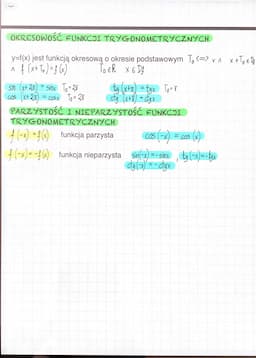 OKRESOWOŚĆ FUNKCJI TRYGONOMETRYCZNYCH
y=f(x) jest funkcją okresową o okresie podstawowym T₀ <=> x ∧ x+T₀ ∈ D
∧ f(x+T₀)=f(x) T₀∈R x∈D
sin (x+2π) = sinx T₀=2π tg (x+π) = tgx T₀=π
cos (x+2π) = cosx T₀=2π ctg (x+π) = ctgx
PARZYSTOŚĆ I NIEPARZYSTOŚĆ FUNKCJI
TRYGONOMETRYCZNYCH
f(-x) = f(x) funkcja parzysta cos (-x) = cos (x)
f(-x) = -f(x) funkcja nieparzysta sin(-x) = -sinx , tg(-x) = -tgx
ctg(-x) = -ctgx